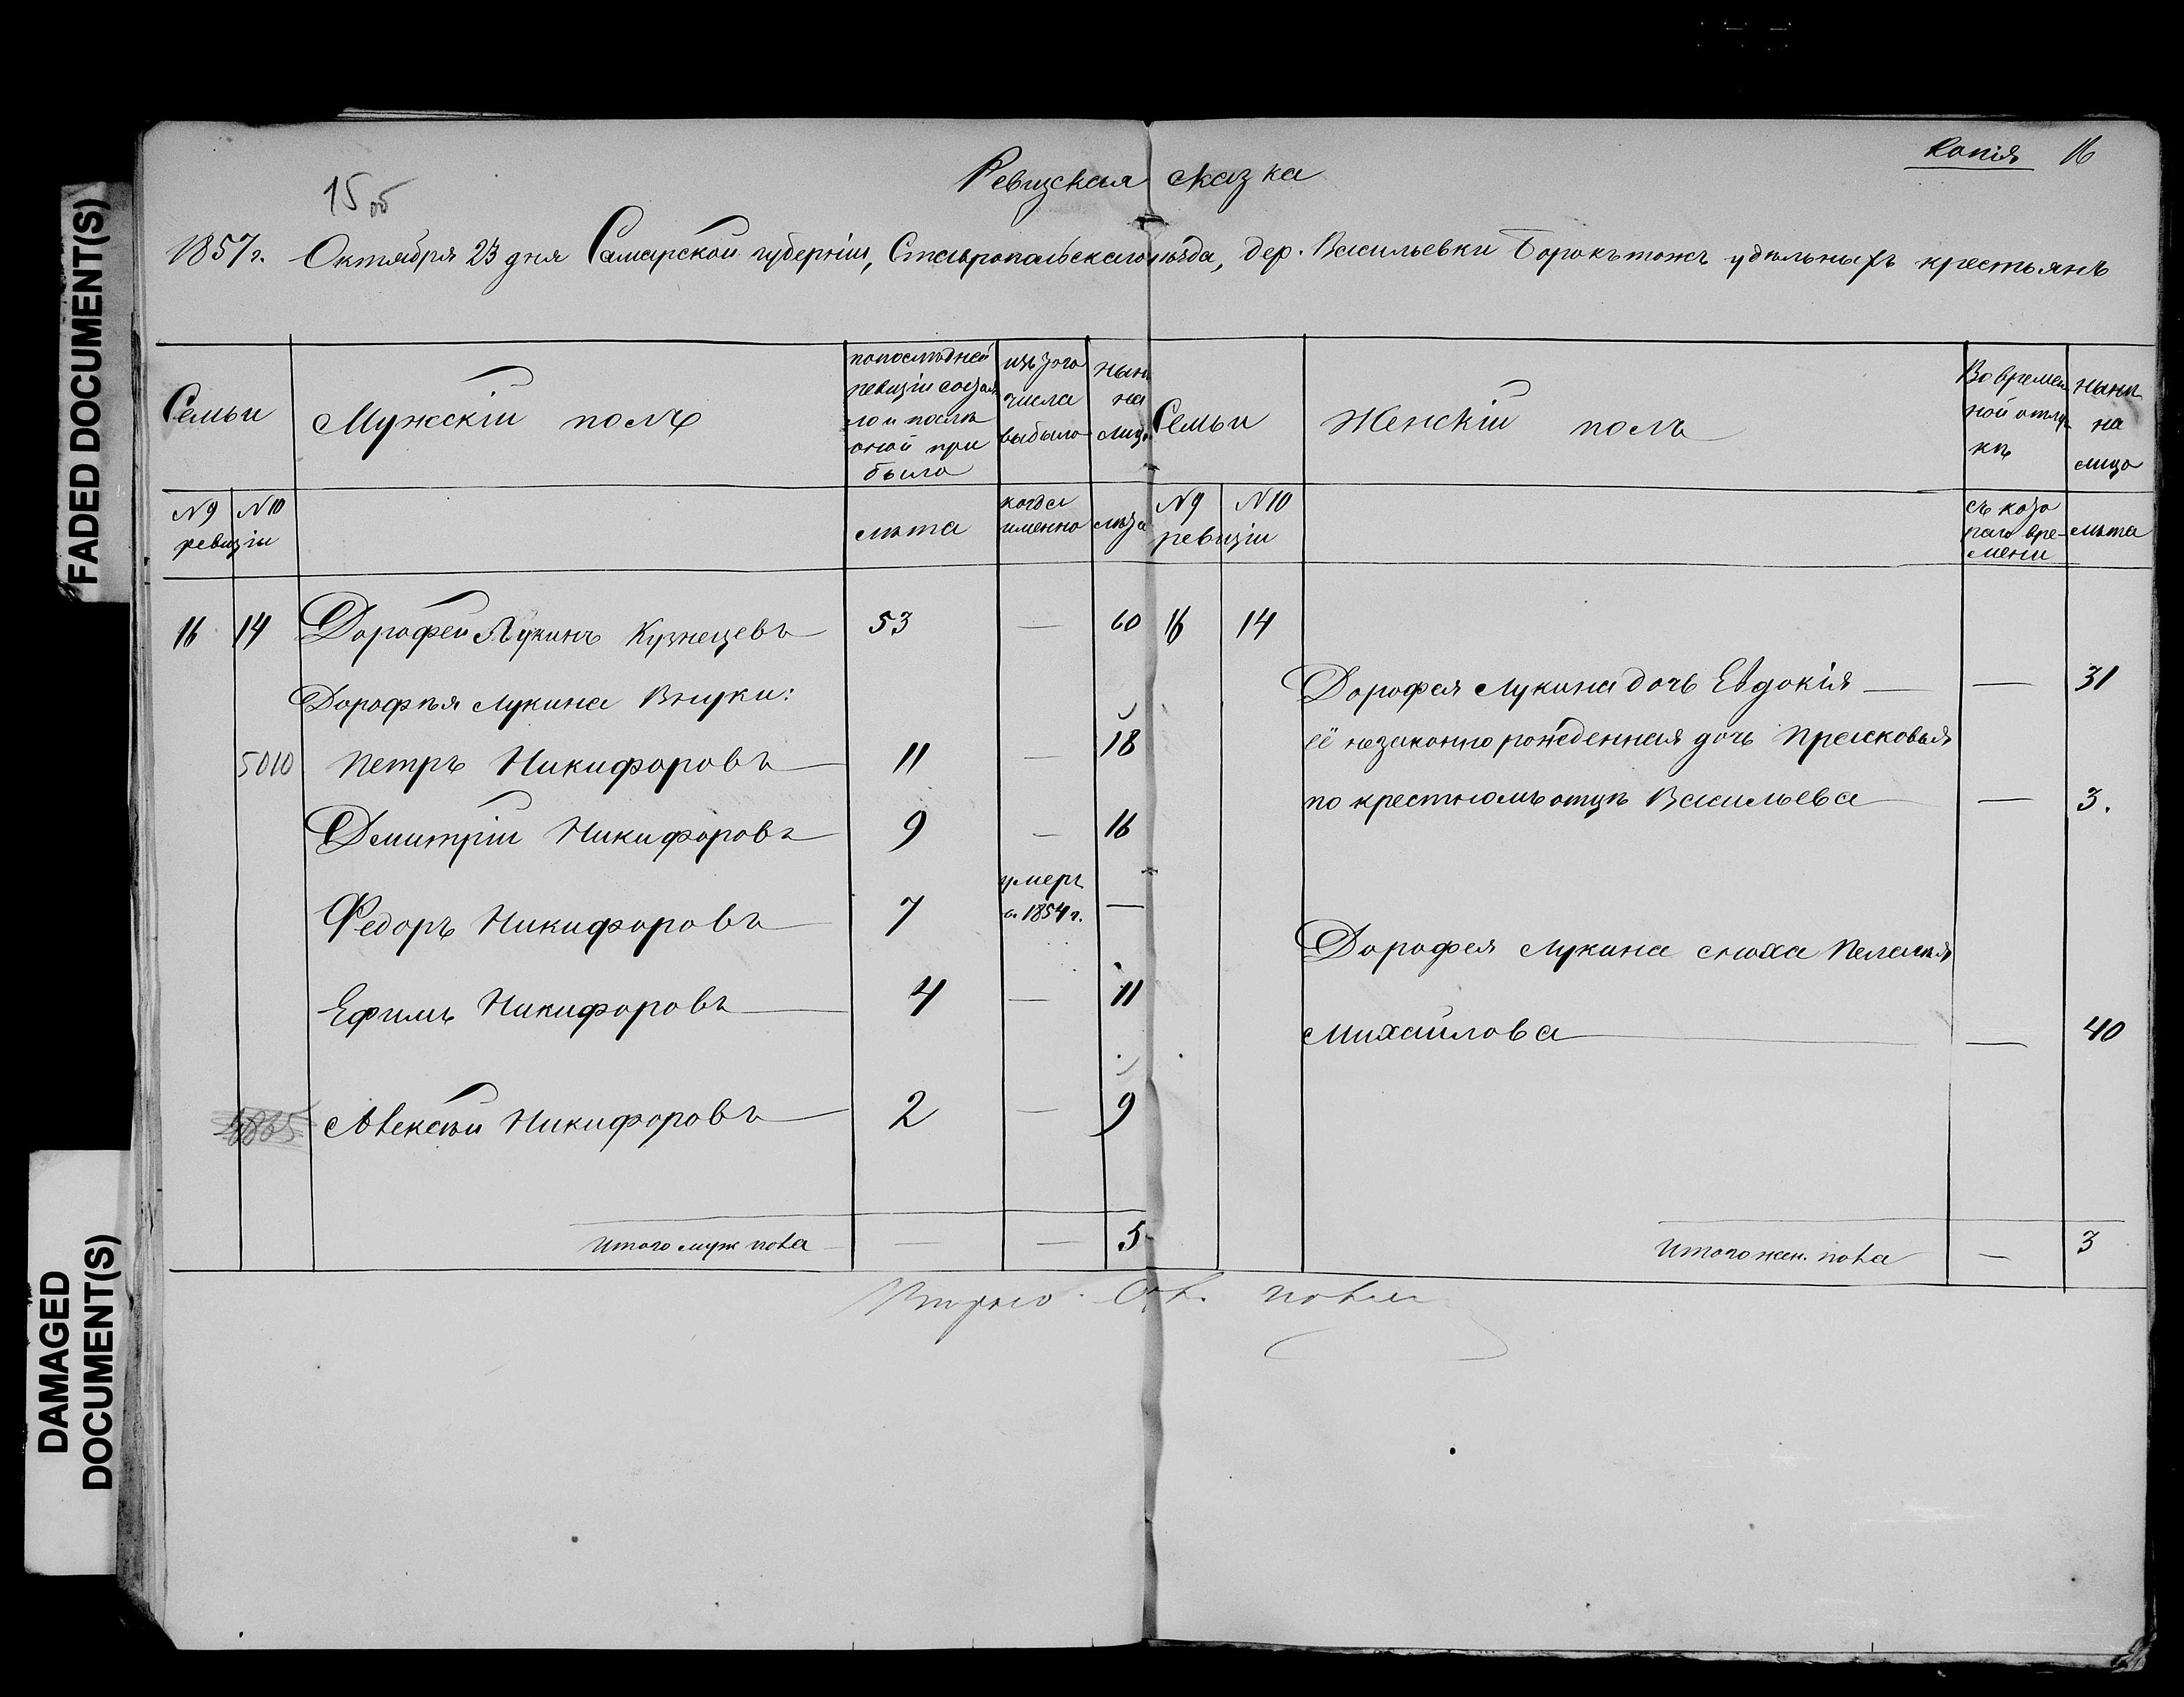 FADED DOCUMENT(S)
DAMAGED
DOCUMENT(S)
Копія 16
15 об
Ревизская сказка
1857 г. Октября 23 дня Самарской губерніи, Ставропольскаго уѣзда, дер. Васильевки Борокъ тожъ удѣльныхъ крестьянъ
Семьи
№ 9 № 10
ревизіи
Мужскій полъ
по послѣдней
ревизіи состоя
ло и послѣ
оной при
было
лѣта
изъ того
числа
выбыло
когда
именно
нынѣ
на
лицо
лѣта
Семьи
№ 9 № 10
ревизіи
Женскій полъ
Во времен
ной отлуч
кѣ
съ кото
раго вре-
мени
нынѣ
на
лицо
лѣта
16 14 Дорофей Лукинъ Кузнецевъ 53 — 60
Дорофѣя Лукина внуки:
5010 Петръ Никифоровъ 11 — 18
Дмитрій Никифоровъ 9 — 16
Федоръ Никифоровъ 7 умеръ —
в 1854 г.
Ефимъ Никифоровъ 4 — 11
Алексѣй Никифоровъ 2 — 9
Итого муж пола — — 5
16 14
Дорофея Лукина дочь Евдокія — — 31
её незаконно рожденная дочь Прасковья
по крестномъ отцѣ Васильева — 3.
Дорофея Лукина сноха Пелагея
Михайлова — 40
Итого жен. пола — 3